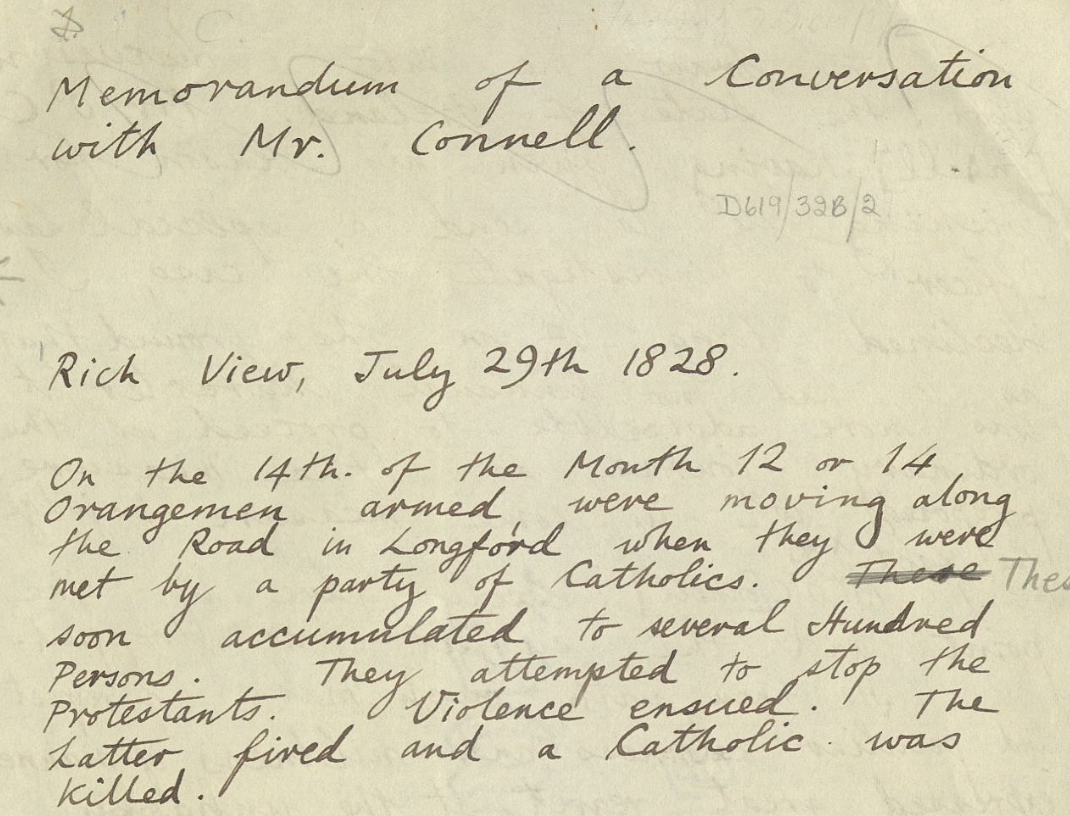 Memorandum of a Conversation
with Mr. Connell.
D619/32B/2
Rich View, July 29th 1828.
On the 14th. of the Month 12 or 14
Orangemen armed, were moving along
the Road in Longford when they were
met by a party of Catholics. These Thes
soon accumulated to several Hundred
Persons. They attempted to stop the
Protestants. Violence ensued. The
Latter fired and a Catholic was
killed.